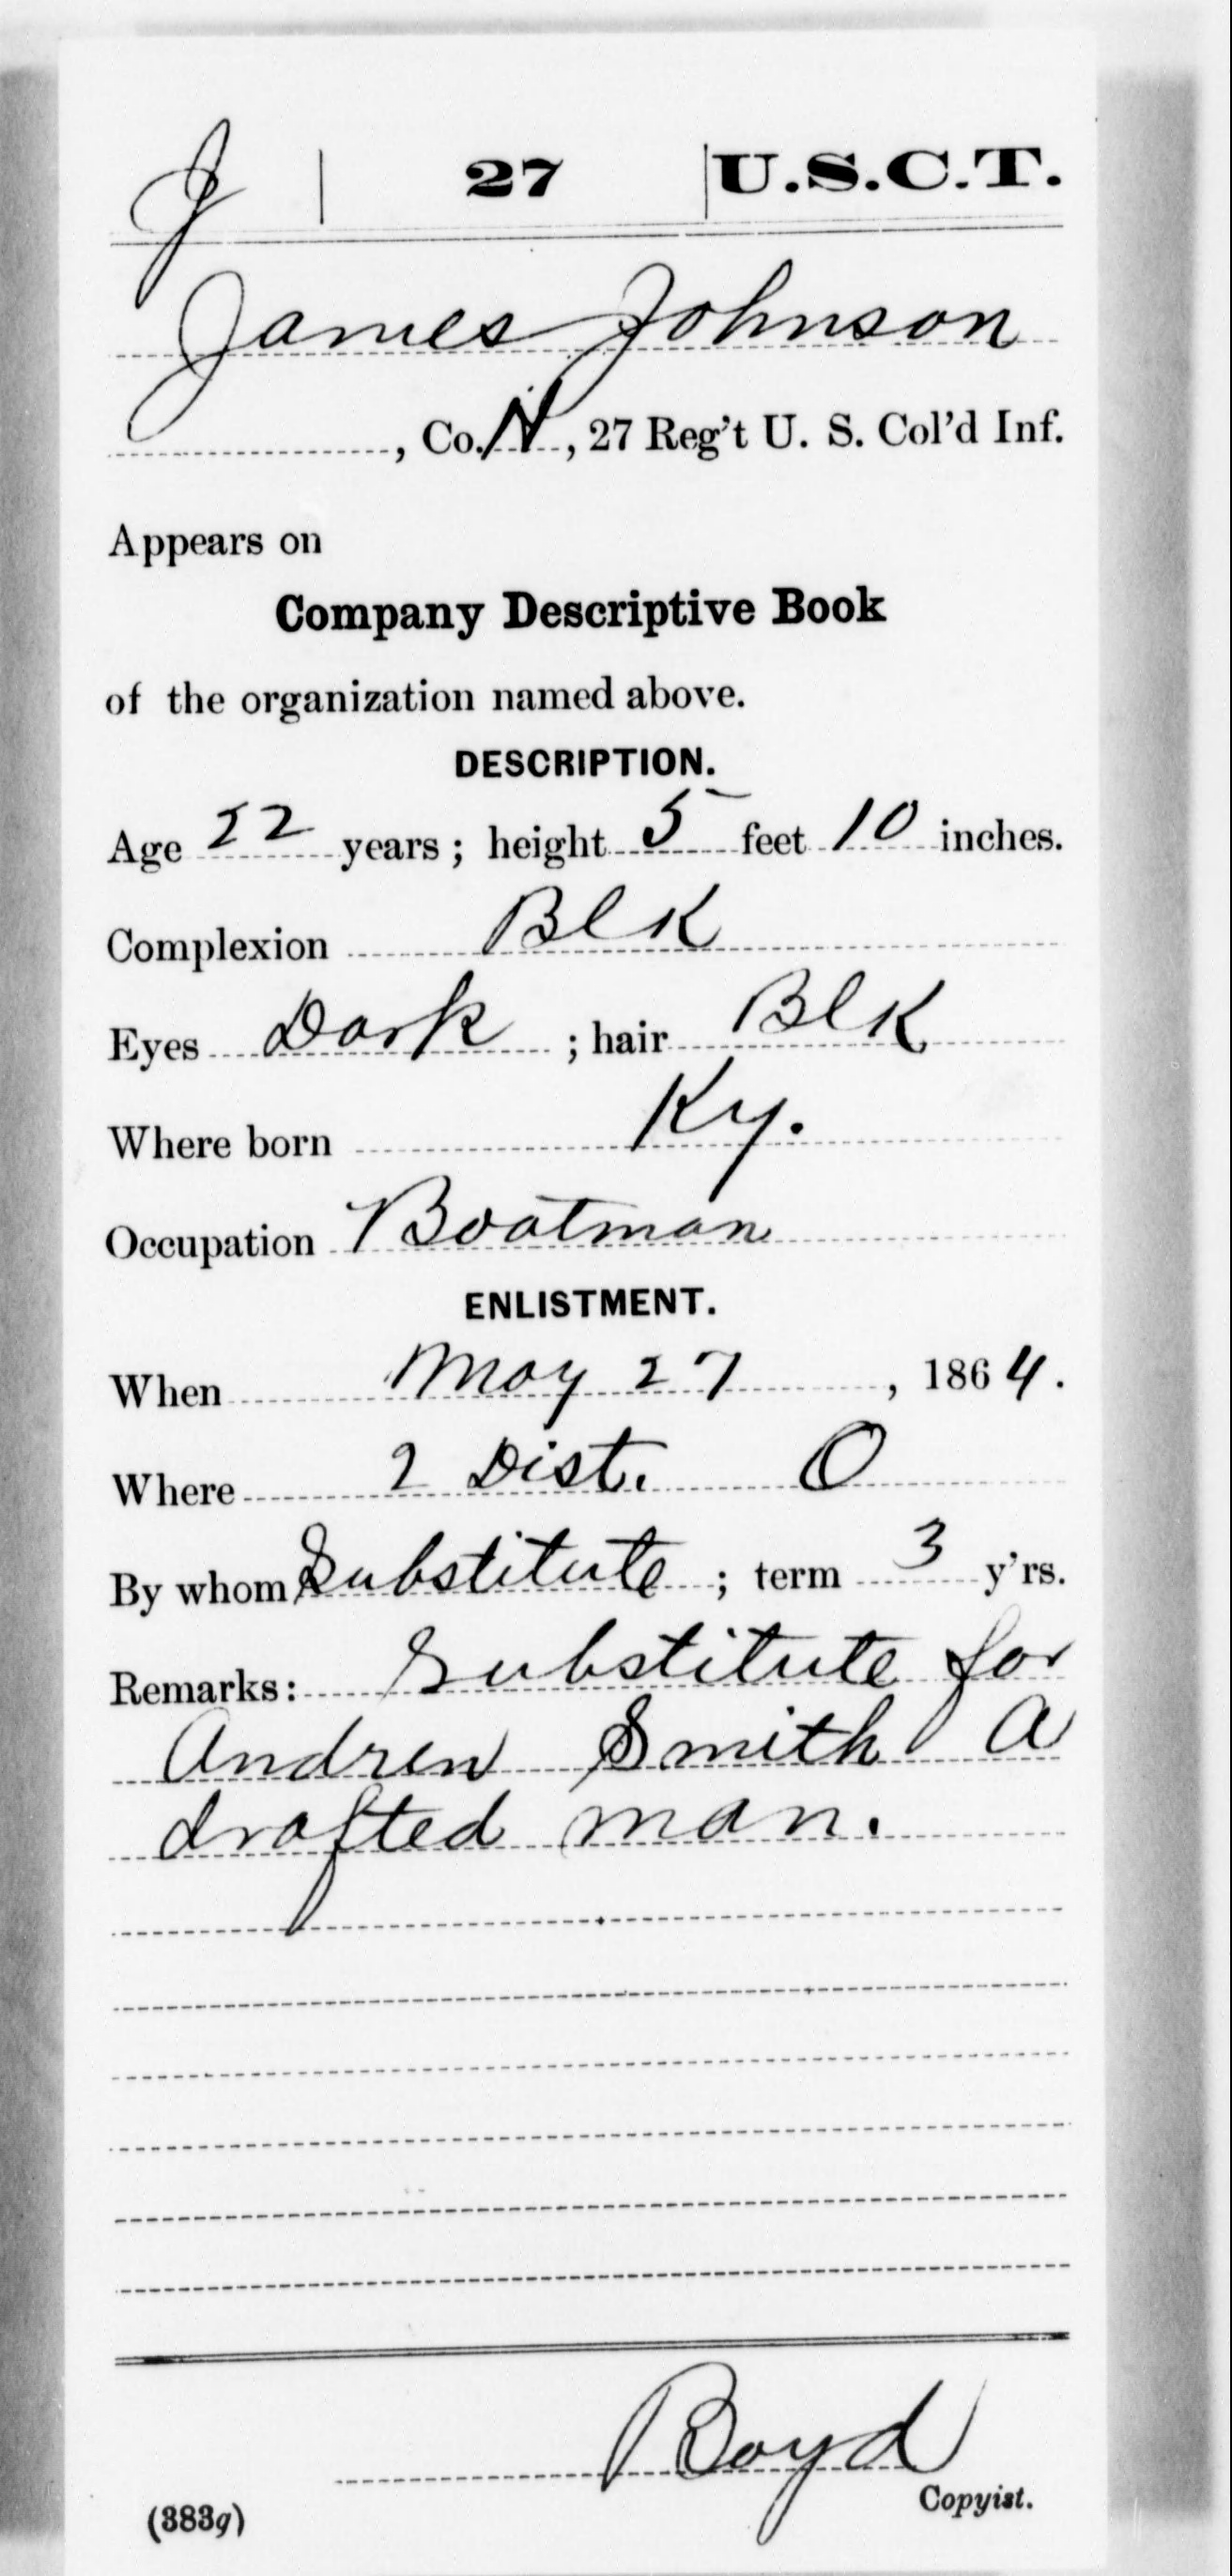 J | 27 | U.S.C.T.
James Johnson
, Co. H, 27 Reg't U. S. Col'd Inf.
Appears on
Company Descriptive Book
of the organization named above.
DESCRIPTION.
Age 22 years; height 5 feet 10 inches.
Complexion Blk
Eyes Dark; hair Blk
Where born Ky.
Occupation Boatman
ENLISTMENT.
When May 27, 1864.
Where 2 Dist. O
By whom Substitute; term 3 y'rs.
Remarks: Substitute for
Andrew Smith A
drafted man.
Boyd
Copyist.
(383g)